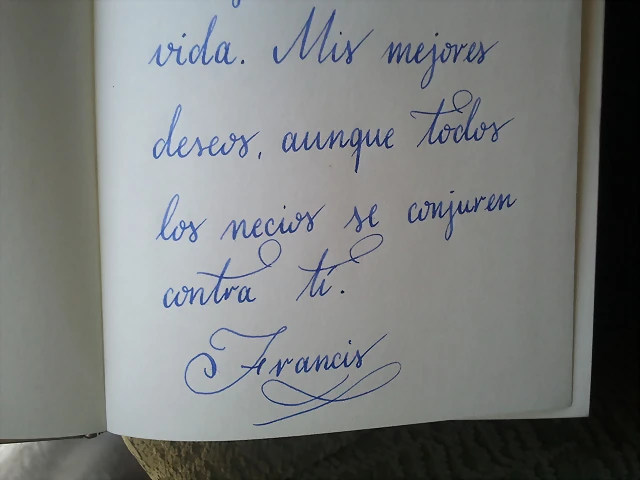 vida. Mis mejores
deseos, aunque todos
los necios se conjuren
contra tí.
Francis